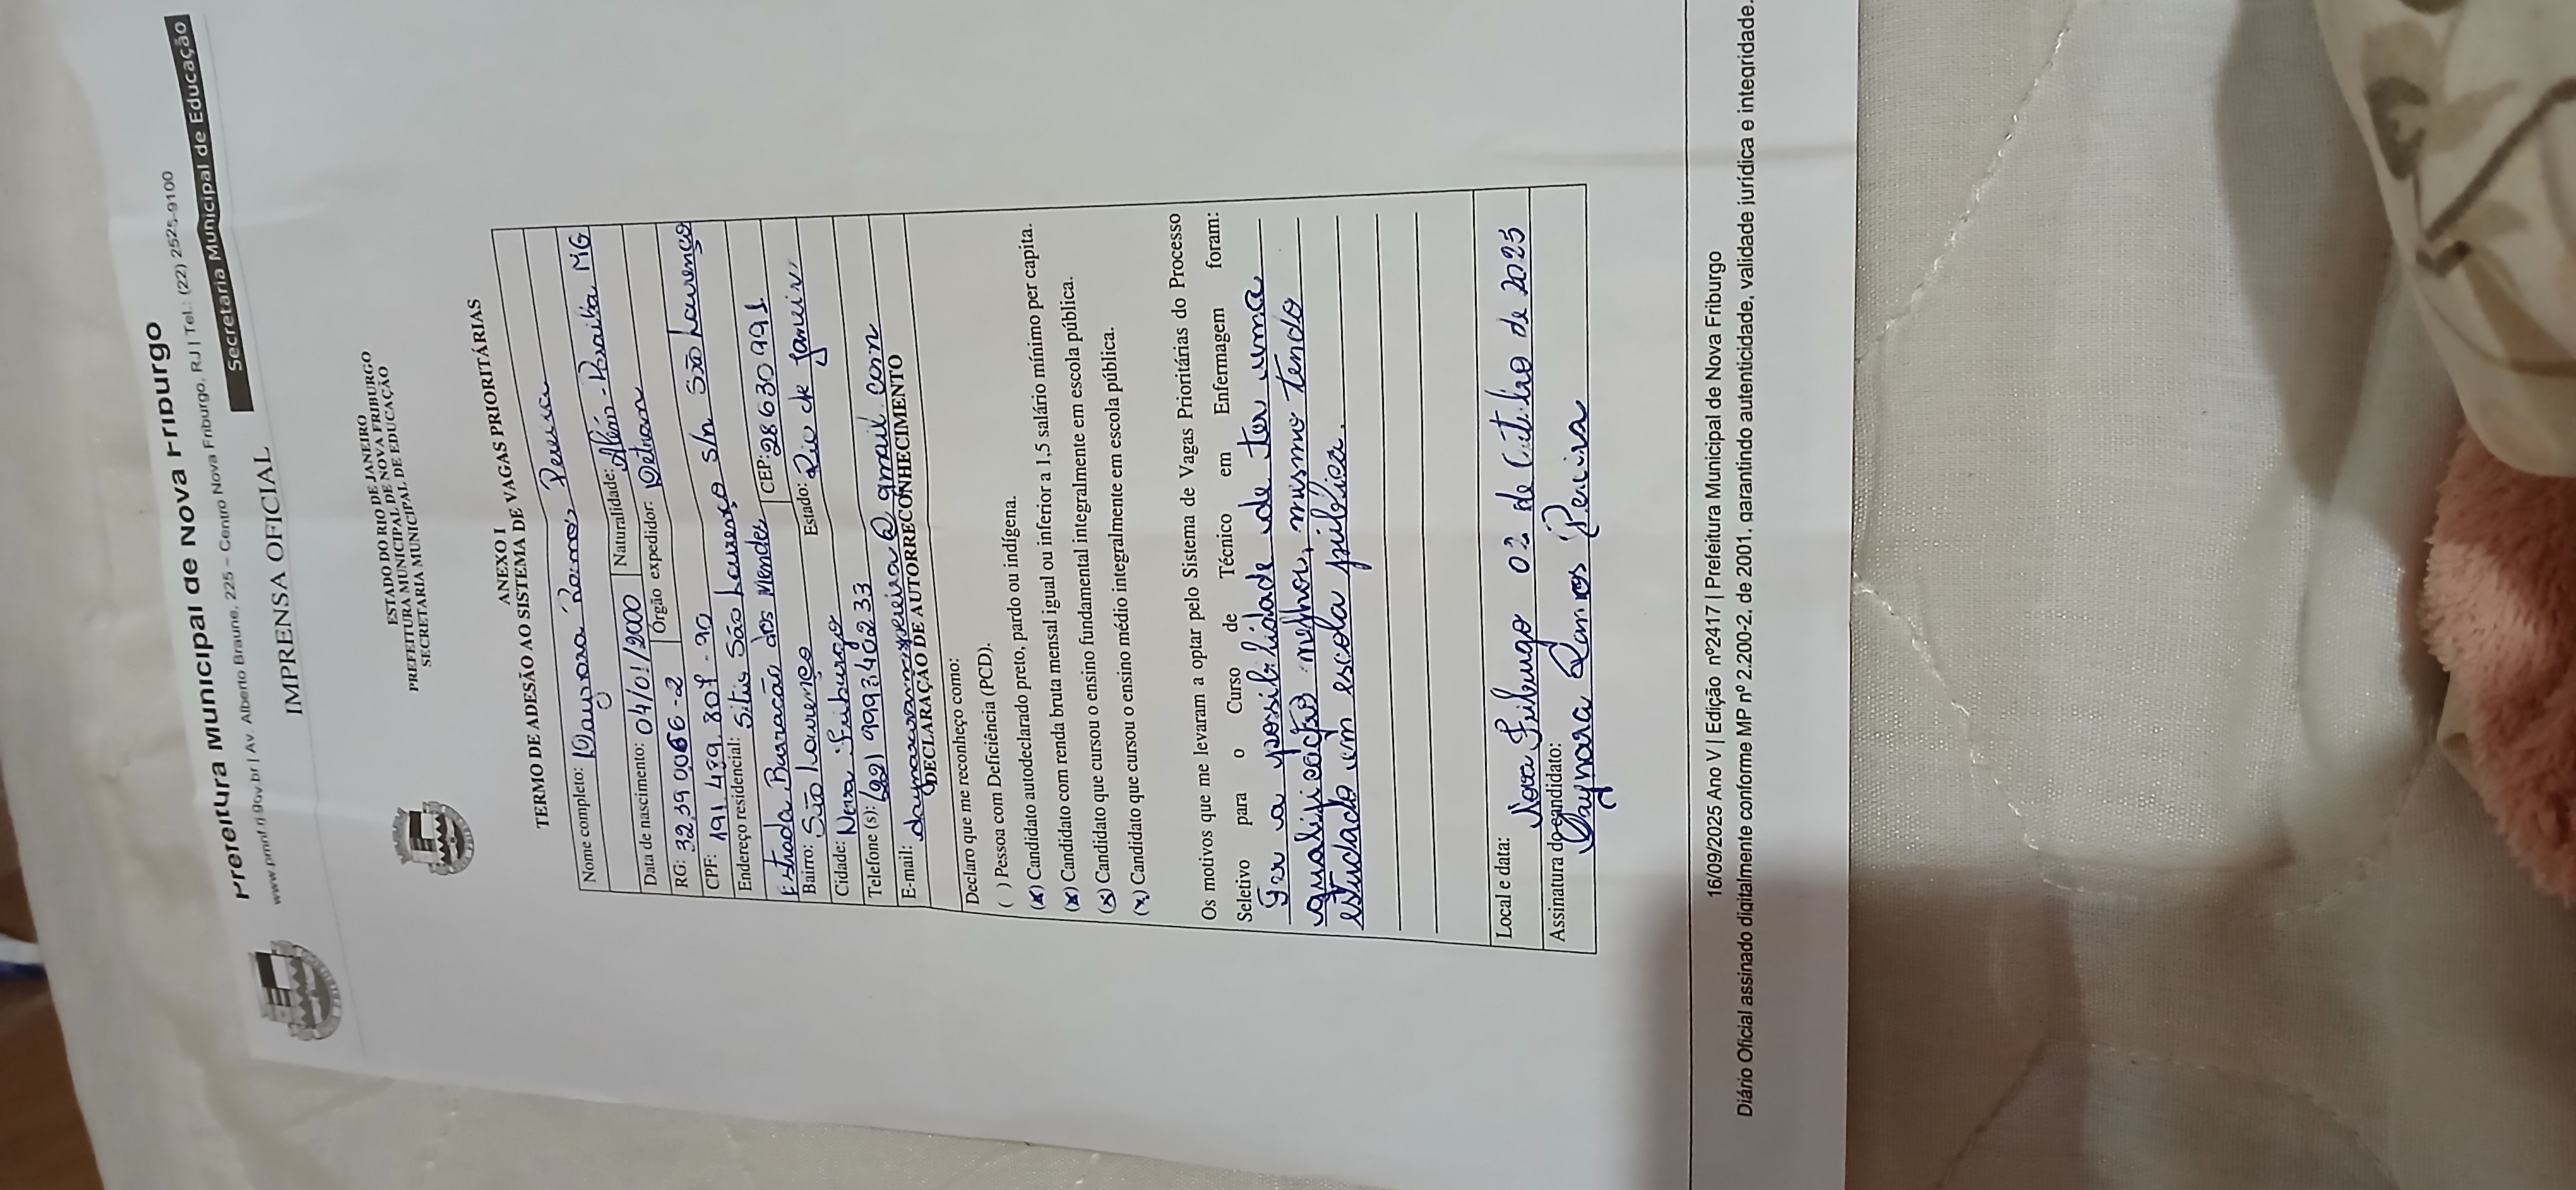 Prefeitura Municipal de Nova Friburgo
www.pmnf.rj.gov.br | Av. Alberto Braune, 225 – Centro Nova Friburgo, RJ | Tel.: (22) 2525-9100
Secretaria Municipal de Educação
IMPRENSA OFICIAL
ESTADO DO RIO DE JANEIRO
PREFEITURA MUNICIPAL DE NOVA FRIBURGO
SECRETARIA MUNICIPAL DE EDUCAÇÃO
ANEXO I
TERMO DE ADESÃO AO SISTEMA DE VAGAS PRIORITÁRIAS
Nome completo: Daynara Ramos Pereira
Data de nascimento: 04/01/2000 Naturalidade: Além-Paraiba MG
RG: 32.390066-2 Órgão expedidor: Detran
CPF: 191.489.807-90
Endereço residencial: Sitio São Lourenço s/n São Lourenço
Estrada Barracão dos Mendes CEP: 28630991
Bairro: São Lourenço Estado: Rio de Janeiro
Cidade: Nova Friburgo
Telefone (s): (22) 999340233
E-mail: daynararamospereira@gmail.com
DECLARAÇÃO DE AUTORRECONHECIMENTO
Declaro que me reconheço como:
( ) Pessoa com Deficiência (PCD).
(x) Candidato autodeclarado preto, pardo ou indígena.
(x) Candidato com renda bruta mensal igual ou inferior a 1,5 salário mínimo per capita.
(x) Candidato que cursou o ensino fundamental integralmente em escola pública.
(x) Candidato que cursou o ensino médio integralmente em escola pública.
Os motivos que me levaram a optar pelo Sistema de Vagas Prioritárias do Processo
Seletivo para o Curso de Técnico em Enfermagem foram:
Ter a possibilidade de ter uma
qualificação melhor, mesmo tendo
estudado em escola pública.
Local e data: Nova Friburgo 02 de Outubro de 2025
Assinatura do candidato: Daynara Ramos Pereira
16/09/2025 Ano V | Edição nº2417 | Prefeitura Municipal de Nova Friburgo
Diário Oficial assinado digitalmente conforme MP nº 2.200-2, de 2001, garantindo autenticidade, validade jurídica e integridade.